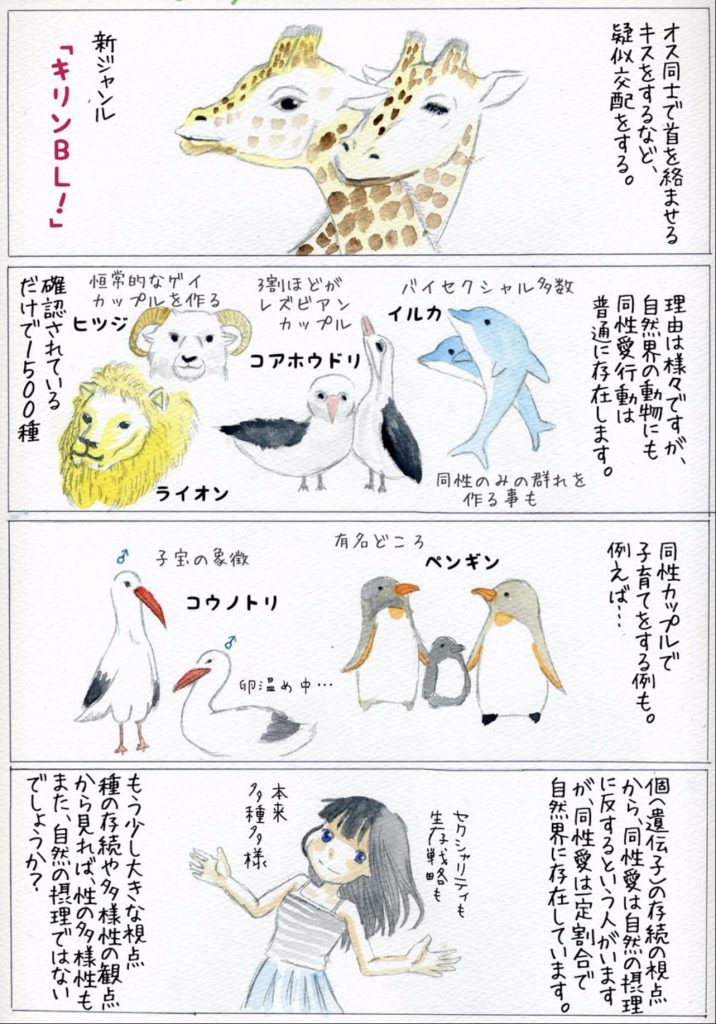 オス同士で首を絡ませる
キスをするなど、
疑似交配をする。
新ジャンル
「キリンBL!」
理由は様々ですが、
自然界の動物にも
同性愛行動は
普通に存在します。
バイセクシャル多数
イルカ
同性のみの群れを
作る事も
3割ほどが
レズビアン
カップル
コアホウドリ
恒常的なゲイ
カップルを作る
ヒツジ
ライオン
確認されている
だけで1500種
同性カップルで
子育てをする例も。
例えば…
有名どころ
ペンギン
♂
子宝の象徴
コウノトリ
♂
卵温め中…
個(遺伝子)の存続の視点
から、同性愛は自然の摂理
に反するという人がいます
が、同性愛は一定割合で
自然界に存在しています。
セクシャリティも
生存戦略も
本来
多種多様
もう少し大きな視点
種の存続や多様性の観点
から見れば、性の多様性も
また、自然の摂理ではない
でしょうか?